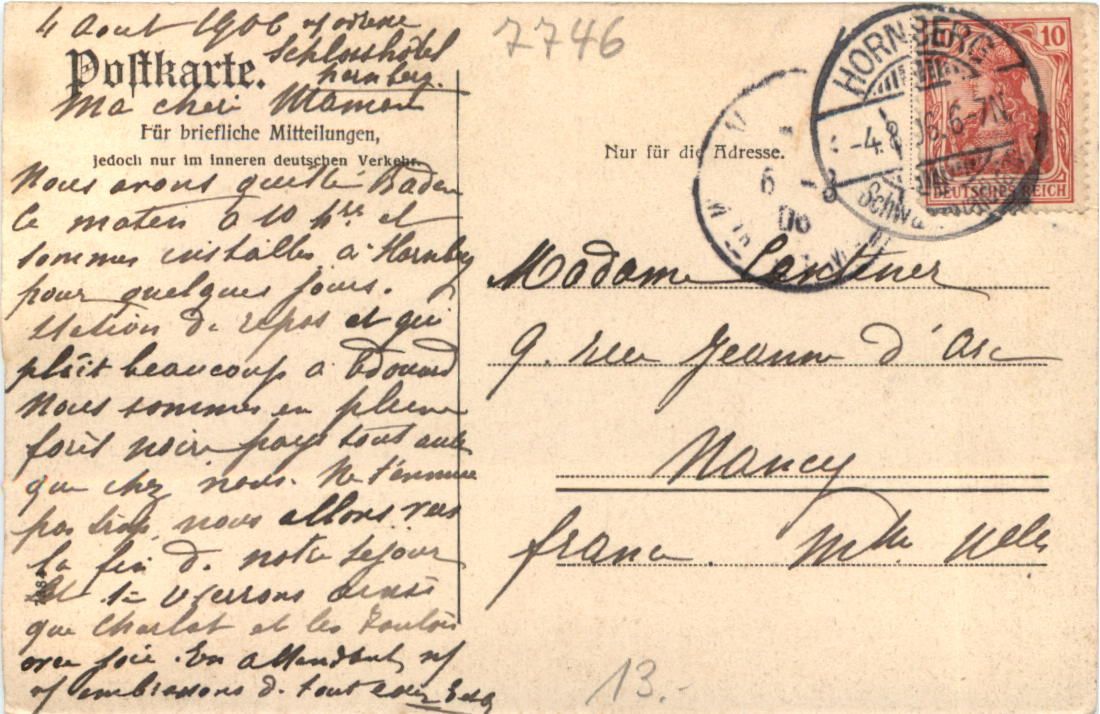 4 Aout 1906
Schlosshotel
hornberg.
7746
Postkarte.
Ma cheri Maman
Für briefliche Mitteilungen,
jedoch nur im inneren deutschen Verkehr.
Nous avons quitté Baden
le matin à 10 hres et
sommes installés à Hornberg
pour quelques jours.
Station de repos et qui
plaît beaucoup à Edouard
Nous sommes en pleine
forêt noire pays tout autre
que chez nous. Ne t'ennuie
pas trop, nous allons vers
la fin de notre séjour
et te verrons ainsi
que Charlot et les
avec joie. En attendant
embrassons de tout
HORNBERG
-4.8.06. 6-7N.
DEUTSCHES REICH
10
6 -8
06
Nur für die Adresse.
Madame Cantener
9. rue Jeanne d'Arc
Nancy
france. Mthe Mlle
13.-